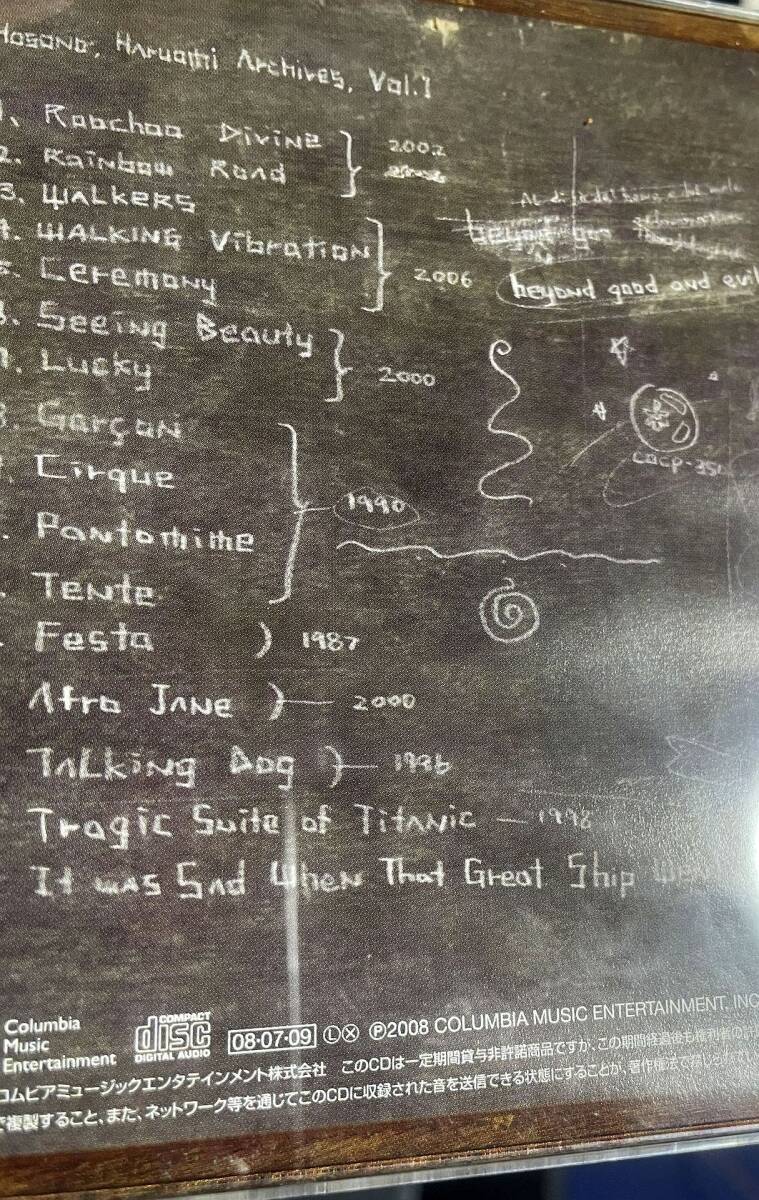 Hosono, Haruomi Archives, Vol.1
1. Roochoo Divine
2. Rainbow Road
2002
3. WALKERS
4. WALKING Vibration
5. Ceremony
2006
beyond good and evil
6. Seeing Beauty
7. Lucky
2000
8. Garçon
Cirque
Pantomime
Tente
1990
COCP-35
Festa ) 1987
Afro Jane ) 2000
Talking Dog ) 1996
Tragic Suite of Titanic — 1998
It was Sad When That Great Ship
Columbia
Music
Entertainment
COMPACT
disc
DIGITAL AUDIO
08・07・09 Ⓛ Ⓧ ℗2008 COLUMBIA MUSIC ENTERTAINMENT, INC
コムビアミュージックエンタテインメント株式会社 このCDは一定期間貸与非許諾商品ですが、この期間経過後も権利者の許
で複製すること、また、ネットワーク等を通じてこのCDに収録された音を送信できる状態にすることが、著作権法で禁じられ